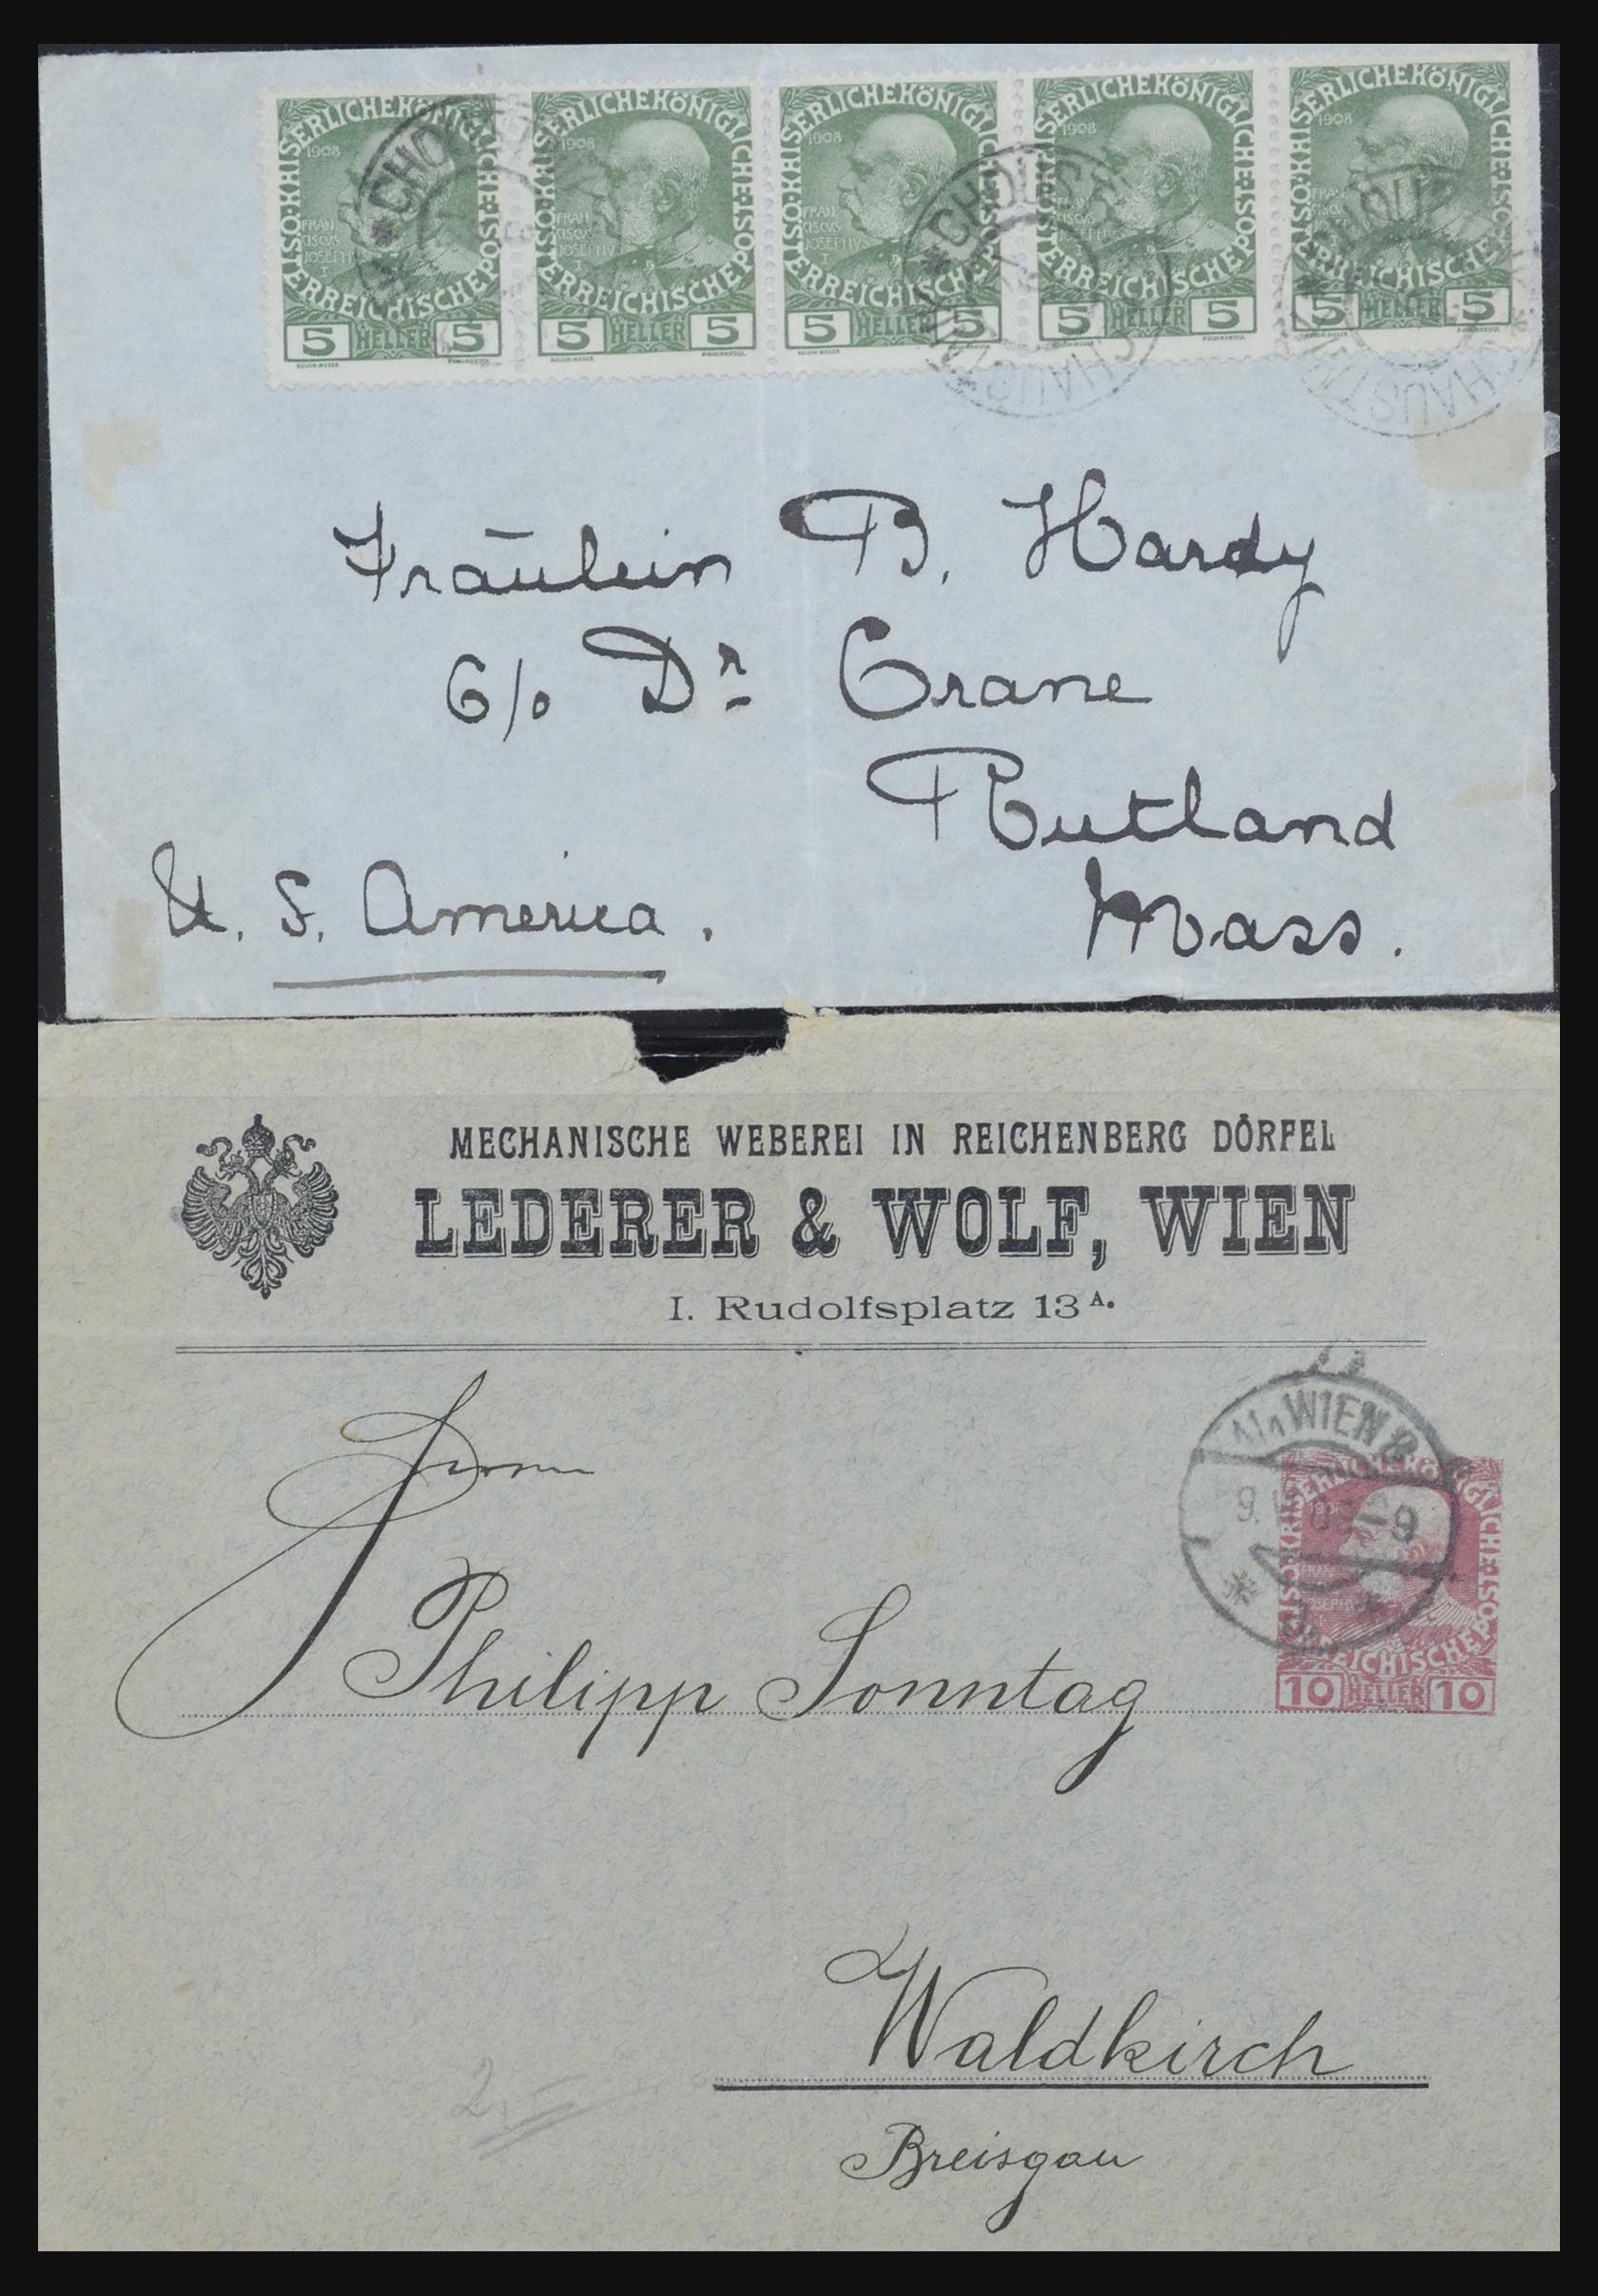 KAISERLICHE KÖNIGLICHE ÖSTERREICHISCHE POST
1908
FRANCISCUS JOSEPHUS I
5 HELLER 5
KAISERLICHE KÖNIGLICHE ÖSTERREICHISCHE POST
1908
FRANCISCUS JOSEPHUS I
5 HELLER 5
KAISERLICHE KÖNIGLICHE ÖSTERREICHISCHE POST
1908
FRANCISCUS JOSEPHUS I
5 HELLER 5
KAISERLICHE KÖNIGLICHE ÖSTERREICHISCHE POST
1908
FRANCISCUS JOSEPHUS I
5 HELLER 5
KAISERLICHE KÖNIGLICHE ÖSTERREICHISCHE POST
1908
5 HELLER 5
Fräulein B. Hardy
C/o Dr Crane
Rutland
Mass.
U. S. America.
MECHANISCHE WEBEREI IN REICHENBERG DÖRFEL
LEDERER & WOLF, WIEN
I. Rudolfsplatz 13 A.
WIEN
10 HELLER 10
Herrn
Philipp Sonntag
Waldkirch
Breisgau
2.